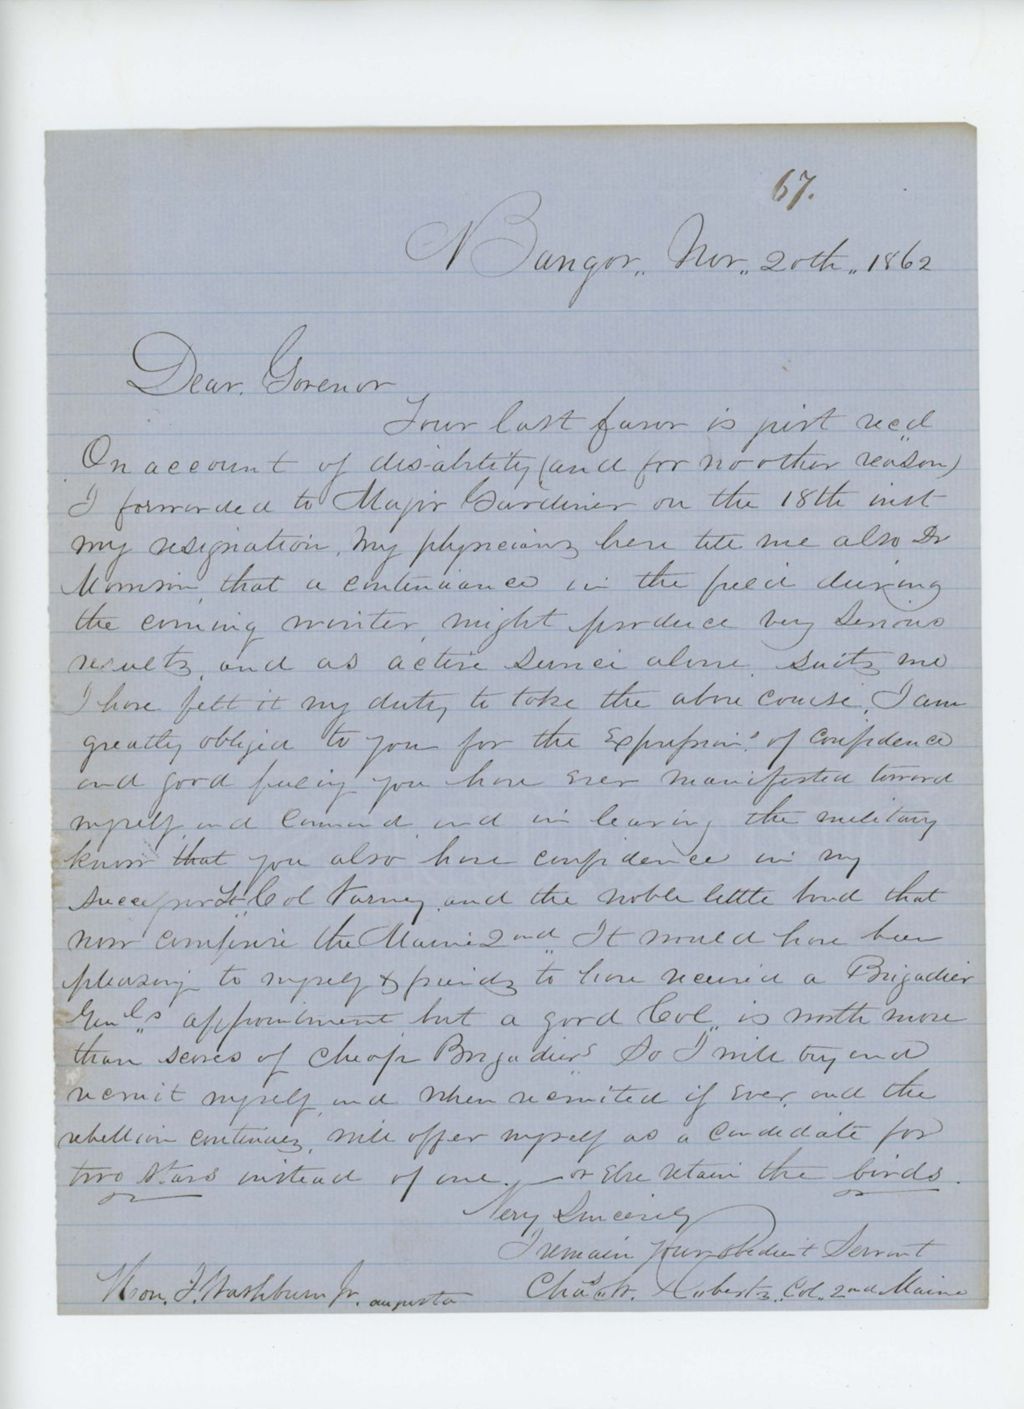 67.
Bangor,, Nov,, 20th,, 1862
Dear, Govenor
Your last favor is just recd
On account of disability (and for no other reason)
I forwarded to Major Gardiner on the 18th inst
my resignation, My physicians here tell me also Dr
Morrison, that a continuance in the field during
the coming winter, might produce very serious
results, and as active service alone suits me
I have felt it my duty to take the above course, I am
greatly obliged to you for the expressions of confidence
and good feeling you have ever manifested toward
myself and Command and in leaving the military
know that you also have confidence in my
successor Lt Col Varney, and the noble little band that
now comprise the Maine 2nd,, It would have been
pleasing to myself & friends to have received a Brigadier
Genls appointment, but a good Col,, is worth more
than scores of cheap Brigadiers So I will try and
recruit myself, and when recruited if ever, and the
rebellion continues, will offer myself as a candidate for
two stars instead of one. — or else retain the birds.
Very Sincerely
I remain your obedient Servant
Hon. I. Washburn Jr. augusta
Chas,, W. Roberts,, Col,, 2nd Maine